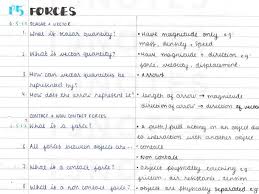 P5 FORCES
6.5.1.1 SCALAR & VECTOR
1 What is scalar quantity?
• Have magnitude only e.g
mass, density & speed
2 What is vector quantity?
• Have magnitude & direction e.g
force, velocity, displacement
3 How can vector quantities be
represented by?
• Arrows
4 How does the arrow represent it?
• length of arrow → magnitude
direction of arrow → direction of
CONTACT & NON CONTACT FORCES
What is a force?
• A push / pull acting on an object due
to interaction with another object
6 All forces between objects are
• Contact
• Non contact
7 What is a contact force?
• Object physically touching e.g
friction, air resistance, tension
8 What is a non contact force?
• object are physically separated e.g